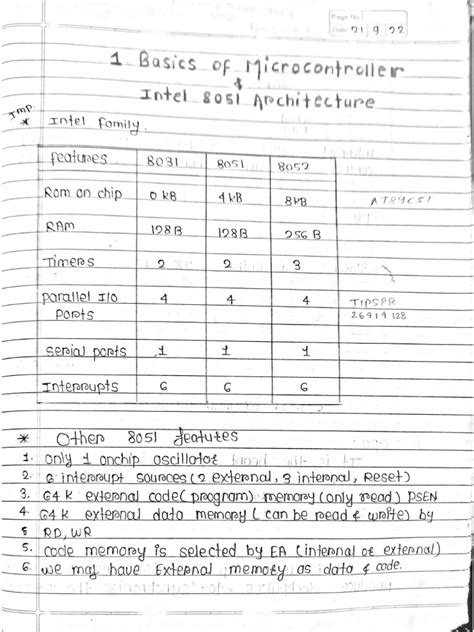 Page No.
Date 21 9 22
1. Basics of Microcontroller
&
Intel 8051 Architecture
Imp
* Intel Family.
features 8031 8051 8052
Rom on chip 0 kB 4 kB 8kB AT89C51
RAM 128B 128B 256 B
Timers 2 2 3
parallel I/o 4 4 4 TIPSPR
ports 26414 128
serial ports 1 1 1
Interrupts 6 6 6
* Other 8051 features
1. only 1 onchip oscillator
2. 6 interrupt sources (2 external, 3 internal, Reset)
3. 64 k external code (program) memory (only read) PSEN
4. 64 k external data memory (can be read & write) by
RD, WR
5. code memory is selected by EA (internal or external)
6. we may have External memory as data & code.